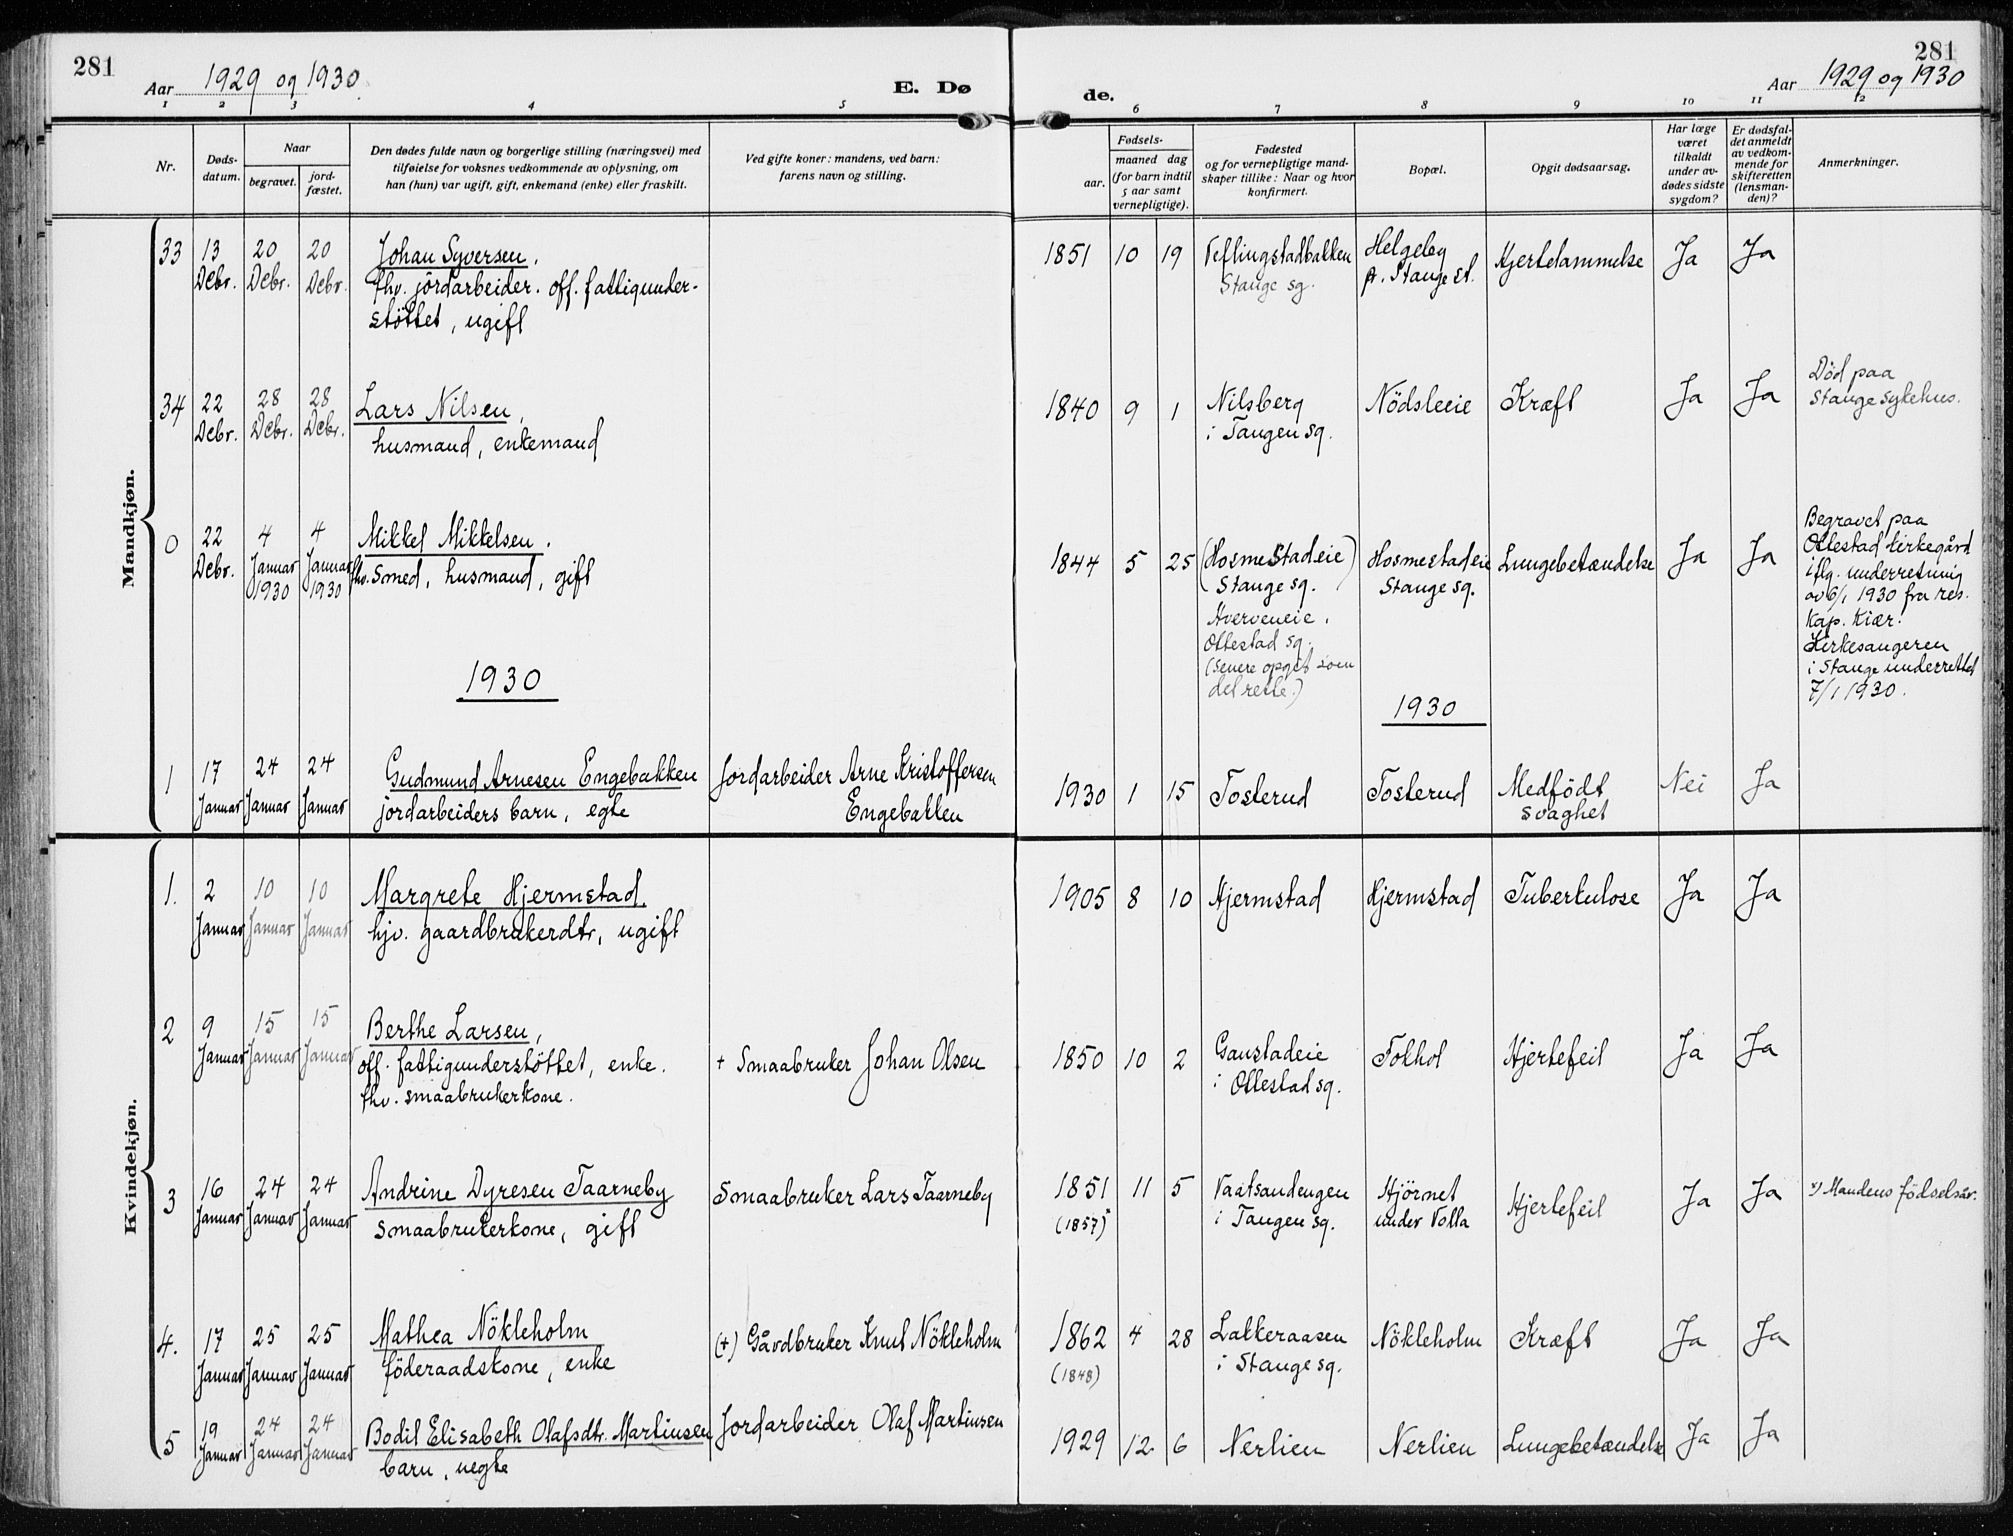 281
Aar 1929 og 1930
E. Dø
de.
281
Aar 1929 og 1930
1 2 3 4 5 6 7 8 9 10 11 12
Nr.
Døds-
datum.
Naar
begravet.
jord-
fæstet.
Den dødes fulde navn og borgerlige stilling (næringsvei) med
tilføielse for voksnes vedkommende av oplysning, om
han (hun) var ugift, gift, enkemand (enke) eller fraskilt.
Ved gifte koner: mandens, ved barn:
farens navn og stilling.
Fødsels-
aar.
maaned dag
(for barn indtil
5 aar samt
vernepligtige).
Fødested
og for vernepligtige mand-
skaper tillike: Naar og hvor
konfirmert.
Bopæl.
Opgit dødsaarsag.
Har læge
været
tilkaldt
under av-
dødes sidste
sygdom?
Er dødsfal-
det anmeldt
av vedkom-
mende for
skifteretten
(lensman-
den)?
Anmerkninger.
Mandkjøn.
33 13 20 20 Johan Syversen, 1851 10 19 Teflingstadbakken Helgeby Hjertelammelse Ja Ja
Debr. Debr. Debr. fhv. jördarbeider. off. fattigunder- Stange sg. p. Stange st.
støttet, ugift
34 22 28 28 Lars Nilsen, 1840 9 1 Nilsberg Nödsleeie Kræft Ja Ja Død paa
Debr. Debr. Debr. husmand, enkemand i Tangen sg. Stange sykehus.
0 22 4 4 Mikkel Mikkelsen. 1844 5 25 (Hosmestadeie) Hosmestadeie Lungebetændelse Ja Ja Begravet paa
Debr. Januar Januar fhv. smed, husmand, gift Stange sg. Stange sg. Ottestad kirkegård
1930 1930 Hverveneie, iflg. underretning
Ottestad sg. av 6/1 1930 fra res.
(senere opgit som Kap. Kiær.
det rette.) Kirkesangeren
i Stange underrettet
7/1 1930.
1930
1930
1 17 24 24 Gudmund Arnesen Engebakken Jordarbeider Arne Kristoffersen 1930 1 15 Tosterud Tosterud Medfödt Nei Ja
Januar Januar Januar jordarbeiders barn, egte Engebakken svaghet
Kvindekjøn.
1. 2 10 10 Margrete Hjermstad. 1905 8 10 Hjermstad Hjermstad Tuberkulose Ja Ja
Januar Januar Januar hjv. gaardbrukerdtr, ugift
2 9 15 15 Berthe Larsen, + Smaabruker Johan Olsen 1850 10 2 Gaustadeie Tokhol Hjertefeil Ja Ja
Januar Januar Januar off. fattigunderstöttet, enke. i Ottestad sg.
fhv. smaabrukerkone.
3 16 24 24 Andrine Dyresen Taarneby Smaabruker Lars Taarneby 1851 11 5 Vaatsandengen Hjörnet Hjertefeil Ja Ja x) Mandens födselsår.
Januar Januar Januar smaabrukerkone, gift (1857)x i Tangen sg. under Volla
4. 17 25 25 Mathea Nökleholm (+) Gårdbruker Knut Nökleholm 1862 4 28 Lakkeraasen Nökleholm Kræft Ja Ja
Januar Januar Januar föderaadskone, enke (1848) i Stange sg.
5 19 24 24 Bodil Elisabeth Olafsdtr. Martinsen Jordarbeider Olaf Martinsen 1929 12 6 Nerlien Nerlien Lungebetændelse Ja Ja
Januar Januar Januar barn, uegte